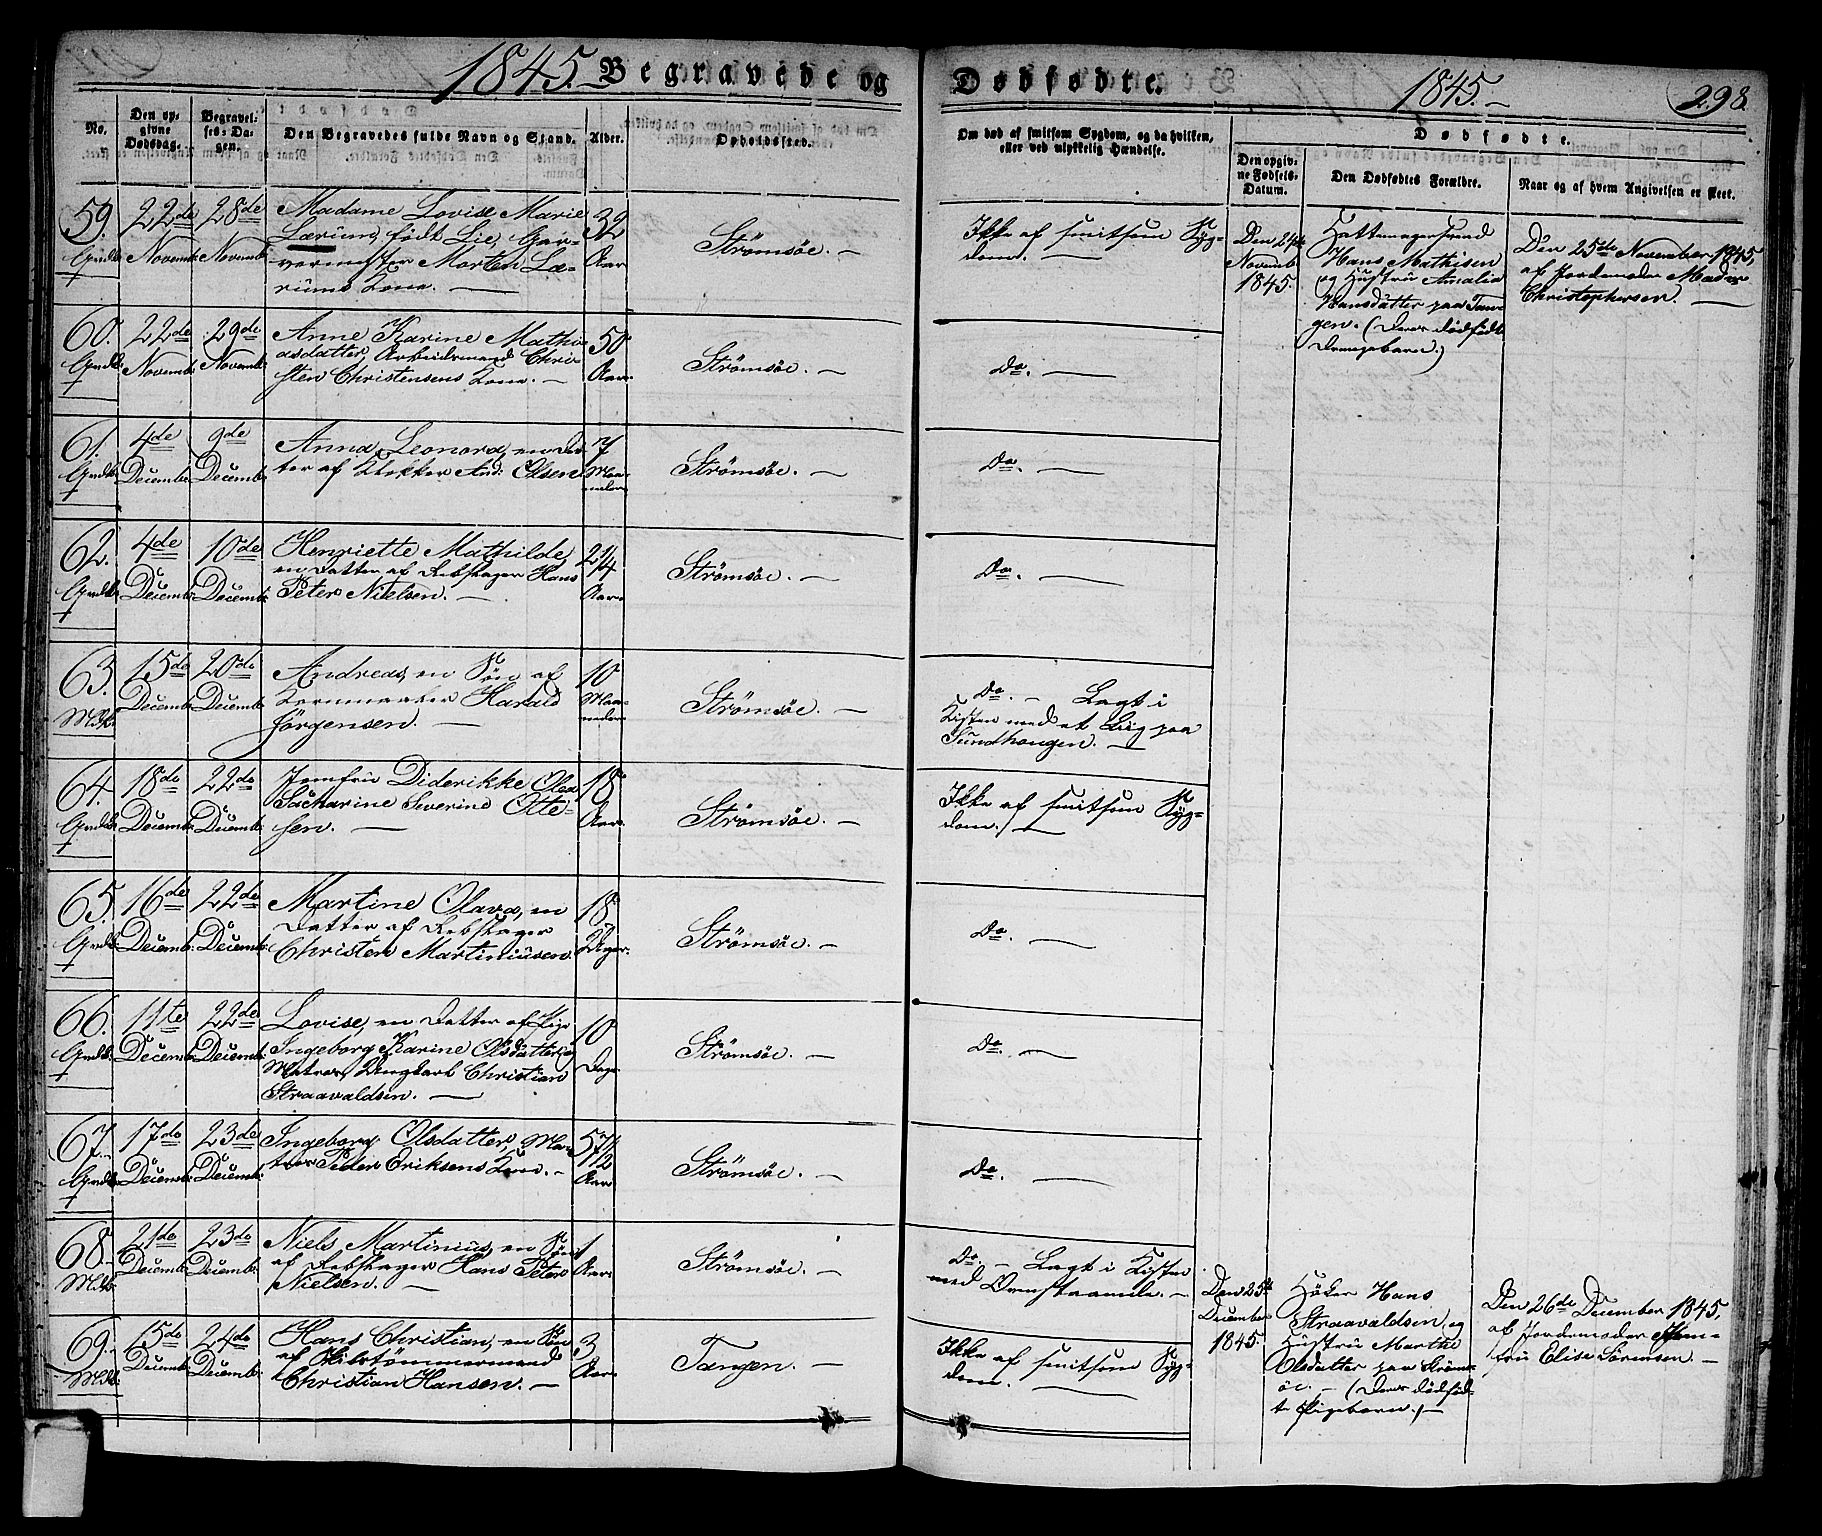 1845. Begravede og Dødfødte. 1845. 298.
No.
Den op-
givne
Dødsdag.
Begravel-
ses-Da-
gen.
Den Begravedes fulde Navn og Stand.
Alder.
Opholdssted.
Om død af smitsom Sygdom, og da hvilken,
eller ved ulykkelig Hændelse.
Dødfødte.
Den opgiv-
ne Fødsels-
Datum.
Den Dødfødtes Forældre.
Naar og af hvem Angivelsen er skeet.
59. 22de Novemb. 28de Novemb.
Madame Lovise Marie
Lærum, født Lie, Gar-
vermester Morten Læ-
rums Kone. —
32 Aar
Strømsøe. —
Ikke af smitsom Syg-
dom. —
Den 24de
Novemb
1845.
Hattemagersvend
Hans Mathisen
og Hustru Amalia
Hansdatter paa Tan-
gen. (Deres dødfødte
Drengebarn.)
Den 25de November 1845,
af Jordemoder Madm
Christophersen. —
60. 22de Novemb. 29de Novemb.
Anne Karine Mathi-
asdatter, Arbeidsmand Chri-
sten Christensens Kone. —
50 Aar.
Strømsøe. —
Do. —
61. 4de Decemb. 9de Decemb.
Anna Leonora, en Dat-
ter af Klokker And: Olsen
7 Maa-
neder
Strømsøe. —
Do. —
62. 4de Decemb. 10de Decemb.
Henriette Mathilde,
en Datter af Rebslager Hans
Peter Nielsen. —
2 1/4 Aar.
Strømsøe. —
Do. —
63. 15de Decemb. 20de Decemb.
Andreas, en Søn af
Kornmaaler Harald
Jørgensen. —
10 Maa-
neder
Strømsøe. —
Do. — Lagt i
Kisten med et Liig paa
Sundhaugen. —
64. 18de Decemb. 22de Decemb.
Jomfru Diderikke Olea
Sacharine Severine Otte-
sen. —
18 Aar.
Strømsøe. —
Ikke af smitsom Syg-
dom. —
65. 16de Decemb. 22de Decemb.
Martine Olava, en
Datter af Rebslager
Christen Martiniusen.
18 Uger.
Strømsøe. —
Do. —
66. 11te Decemb. 22de Decemb.
Lovise, en Datter af Pige
Ingeborg Karine Olsdatter og
Matros, Ungkarl Christian
Straavaldsen. —
10 Dage
Strømsøe. —
Do. —
67. 17de Decemb. 23de Decemb.
Ingeborg Olsdatter, Ma-
tros Peder Eriksens Kone. —
57 1/2 Aar.
Strømsøe. —
Do. —
68. 21de Decemb. 23de Decemb.
Niels Martinius, en Søn
af Rebslager Hans Peter
Nielsen. —
1 Aar.
Strømsøe. —
Do. — Lagt i Kisten
med —
Den 25de
December
1845.
Høker Hans
Straavaldsen, og
Hustru Marthe
Olsdatter paa Strøms-
øe. — (Deres dødfød-
te Pigebarn.) —
Den 26de December 1845,
af Jordemoder Jom-
fru Elise Sørensen. —
69. 15de Decemb. 24de Decemb.
Hans Christian, en Søn
af Skibstømmermand
Christian Hansen. —
3 Aar.
Tangen. —
Ikke af smitsom Syg-
dom. —